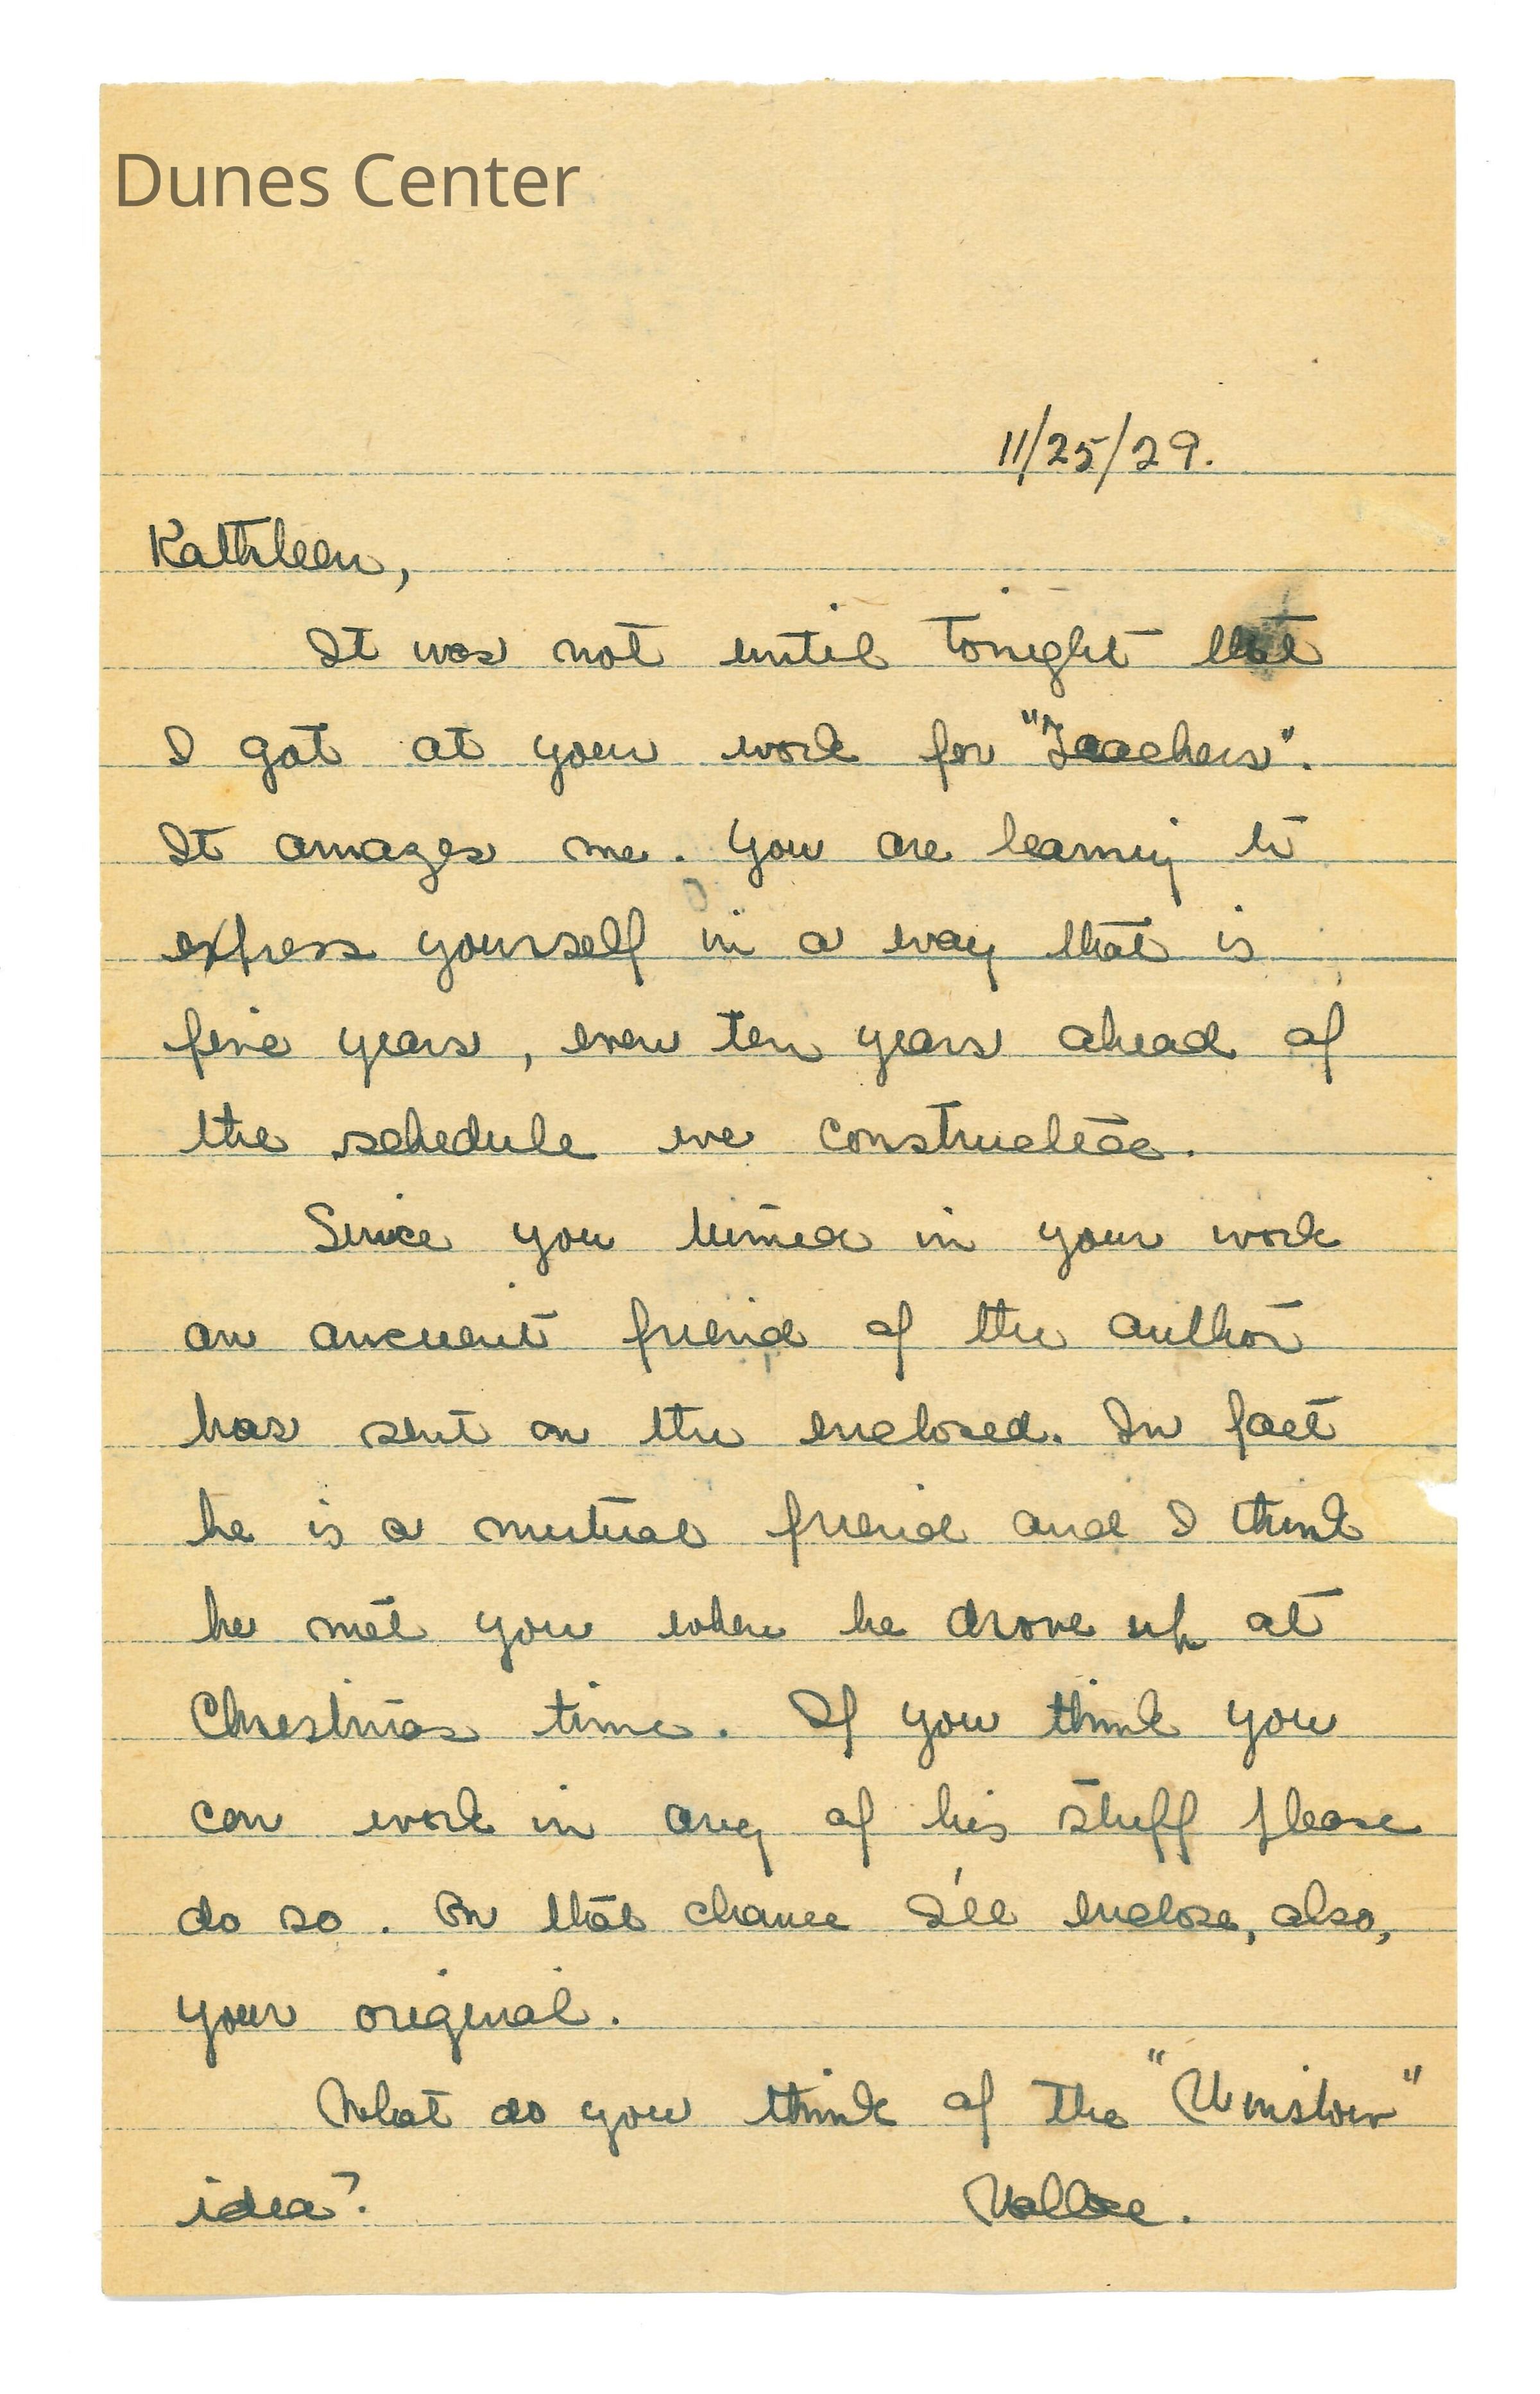 Dunes Center
11/25/29.
Kathleen,
It was not until tonight that
I got at your work for "Teachers".
It amazes me. You are learning to
express yourself in a way that is
five years, even ten years ahead of
the schedule we constructed.
Since you turned in your work
an ancient friend of the author
has sent on the enclosed. In fact
he is a mutual friend and I think
he met you when he drove up at
Christmas time. If you think you
can work in any of his stuff please
do so. On that chance I'll enclose, also,
your original.
What do you think of the "Winslow"
idea?